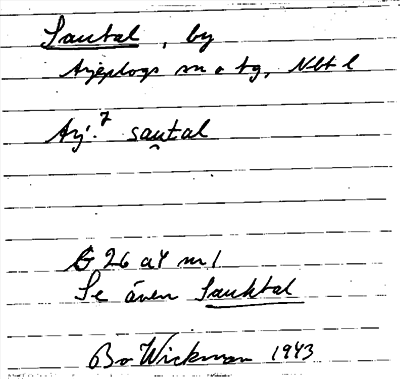 Sautal, by
Arjeplogs sn o tg, Nbt l
Arj. sau̯tal
G 26 a4 m1
Se även Sauktal
Bo Wickman 1943